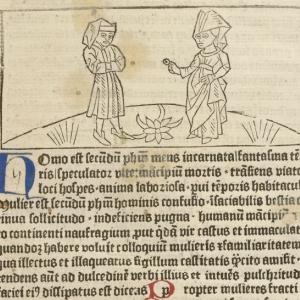 Homo est secũdũ phm̃ mens incarnata fantasma tẽ
ris speculator vite mãcipiũ mortis trãsiens viato
loci hospes anima laboriosa pui tẽporis habitacu
Mulier est secũdũ phm̃ hominis confusio isaciabilis bestia
tinua sollicitudo indeficiens pugna humanũ mãcipi
ro continenti naufragium, put qdã vir castus et immaculat
quandoqꝫ habere voluit colloquiũ mulieris et familiaritatem
qua illectus et illaqueatus sigillum castitatis cõmisit am
cendens aunt ad dulcedinẽ verbi illius et intuens pulchritud
faciei ei⁹ dissipatus est diceas Propter mulieres fracti